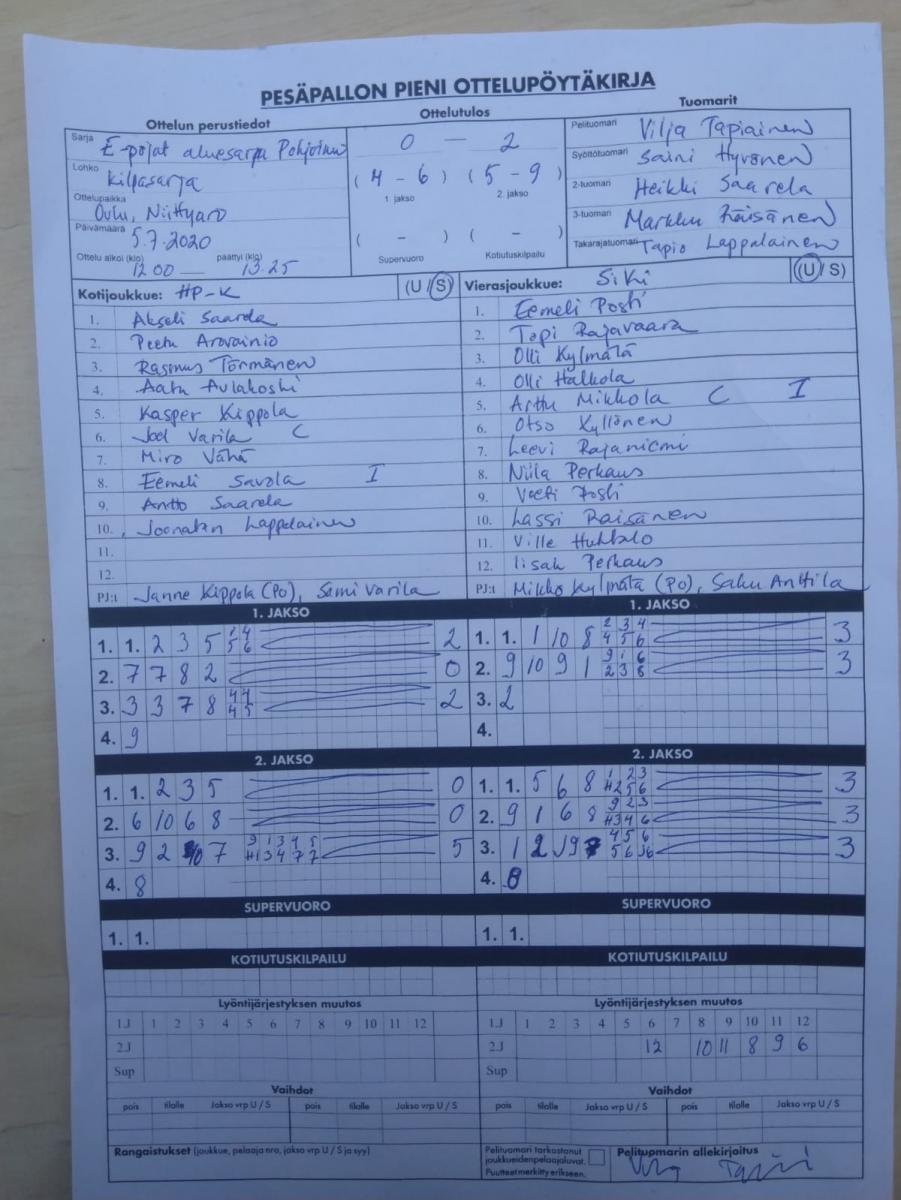 PESÄPALLON PIENI OTTELUPÖYTÄKIRJA
Ottelun perustiedot
Ottelutulos
Tuomarit
Sarja E-pojat aluesarja
Lohko Kilpasarja
Ottelupaikka Oulu, Niittyaro
Päivämäärä 5.7.2020
Ottelu alkoi (klo) 12 00 — päättyi (klo) 13.25
0 — 2
( 4 - 6 ) ( 5 - 9 )
1. jakso 2. jakso
( - ) ( - )
Supervuoro Kotiutuskilpailu
Pelituomari Vilja Tapiainen
Syöttötuomari Saini Hyvönen
2-tuomari Heikki Saarela
3-tuomari Markku Räisänen
Takarajatuomari Tapio Lappalainen
Kotijoukkue: HP-K (U / S)
1. Akseli Saarela
2. Peetu Arovainio
3. Rasmus Törmänen
4. Aatu Aulakoski
5. Kasper Kippola
6. Joel Varila C
7. Miro Vähä
8. Eemeli Savola I
9. Antto Saarela
10. Joonatan Lappalainen
11.
12.
PJ:t Janne Kippola (PO), Sami Varila
Vierasjoukkue: SiKi (U / S)
1. Eemeli Posti
2. Topi Rajavaara
3. Olli Kylmätä
4. Olli Halkola
5. Arttu Mikkola C I
6. Otso Kyllönen
7. Leevi Rajaniemi
8. Niila Perkaus
9. Veeti Posti
10. Lassi Räisänen
11. Ville Huhtalo
12. Iisak Perkaus
PJ:t Mikko Kylmätä (PO), Saku Anttila
1. JAKSO
1. 1. 2 3 5 1 4 5 6 2
2. 7 7 8 2 0
3. 3 3 7 8 4 7 4 5 2
4. 9
1. JAKSO
1. 1. 1 10 8 2 3 4 4 5 6 3
2. 9 10 9 1 9 1 6 2 3 8 3
3. 2
4.
2. JAKSO
1. 1. 2 3 5 0
2. 6 10 6 8 0
3. 9 2 7 9 1 3 4 5 5
4. 8
2. JAKSO
1. 1. 5 6 8 1 2 3 3
2. 9 1 6 8 9 2 3 3
3. 1 2 4 5 6 3
4. 8
SUPERVUORO
1. 1.
SUPERVUORO
1. 1.
KOTIUTUSKILPAILU
KOTIUTUSKILPAILU
Lyöntijärjestyksen muutos
1.J 1 2 3 4 5 6 7 8 9 10 11 12
2.J
Sup
Lyöntijärjestyksen muutos
1.J 1 2 3 4 5 6 7 8 9 10 11 12
2.J 12 10 11 8 9 6
Sup
Vaihdot
pois tilalle Jakso vrp U / S pois tilalle Jakso vrp U / S
Vaihdot
pois tilalle Jakso vrp U / S pois tilalle Jakso vrp U / S
Rangaistukset (joukkue, pelaaja nro, jakso vrp U / S ja syy)
Pelituomari tarkastanut
joukkueidenpelaajaluvat.
Puutteet merkitty erikseen.
Pelituomarin allekirjoitus